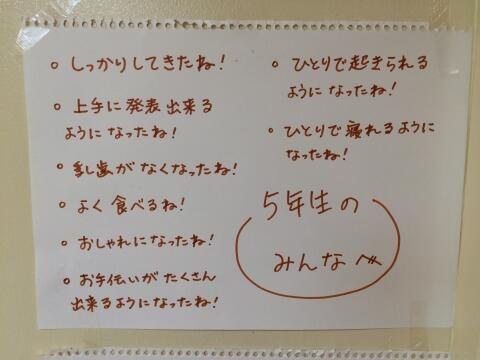 ○ しっかりしてきたね!
○ 上手に発表出来る
ようになったね!
○ 乳歯がなくなったね!
○ よく食べるね!
○ おしゃれになったね!
○ お手伝いがたくさん
出来るようになったね!
○ ひとりで起きられる
ようになったね!
○ ひとりで寝れるように
なったね!
5年生の
みんなへ